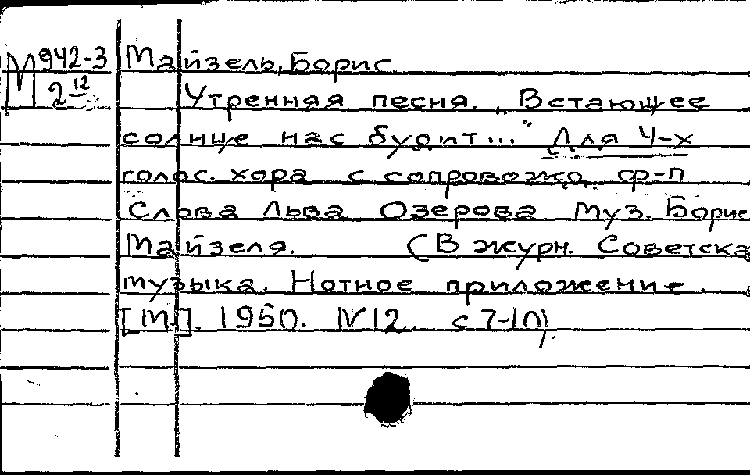 М 942-3 Майзель, Борис.
2 12 Утренняя песня. „Встающее
солнце нас будит..." Для 4-х
голос. хора с сопровожд. ф-п
Слова Льва Озерова Муз. Борис
Майзеля. (В журн. Советска
музыка. Нотное приложение.
[М.]. 1950. N 12. с 7-10)